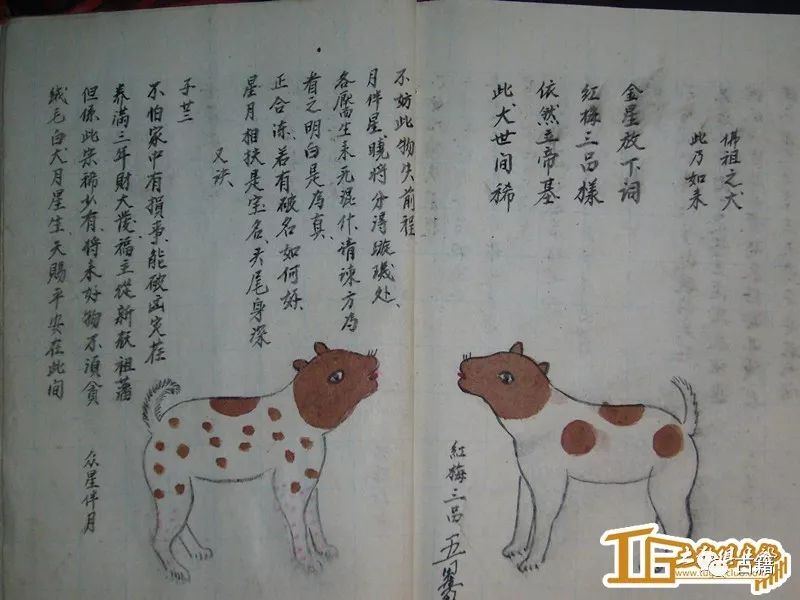 佛祖之犬
此乃如来
金星放下词
紅梅三品樣
依然立帝基
此犬世间稀
紅梅三品
不妨此物失前程
月伴星、曉將分得璇璣处、
各處生来死混什請谏方為
看之明白是為真、
正合冻、若有破名如何好
星月相扶是宝名、头尾身深
又诀
子廿三
不怕家中有損事、能破凶灾在
养满三年財大發、福主從新献祖
但係此宗稀少有、将来好物不須貪
絨毛白犬月星生天賜平安在此间
众星伴月
古籍